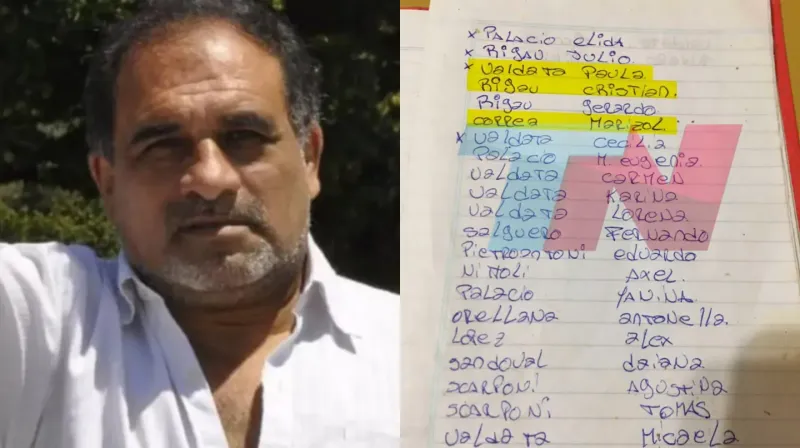 x PALACIO ELIDA
x RIGAU JULIO
x VALDATA PAULA
RIGAU CRISTIAN.
RIGAU GERARDO
CORREA MARIZOL.
x VALDATA CECILIA
PALACIO M. EUGENIA.
VALDATA CARMEN
VALDATA KARINA
VALDATA LORENA
SALGUERO FERNANDO
PIETROANTONI EDUARDO
NITTOLI AXEL.
PALACIO YANINA.
ORELLANA ANTONELLA.
ALEX
SANDOVAL DAIANA
SCARPONI AGUSTINA
SCARPONI TOMAS
VALDATA MICAELA